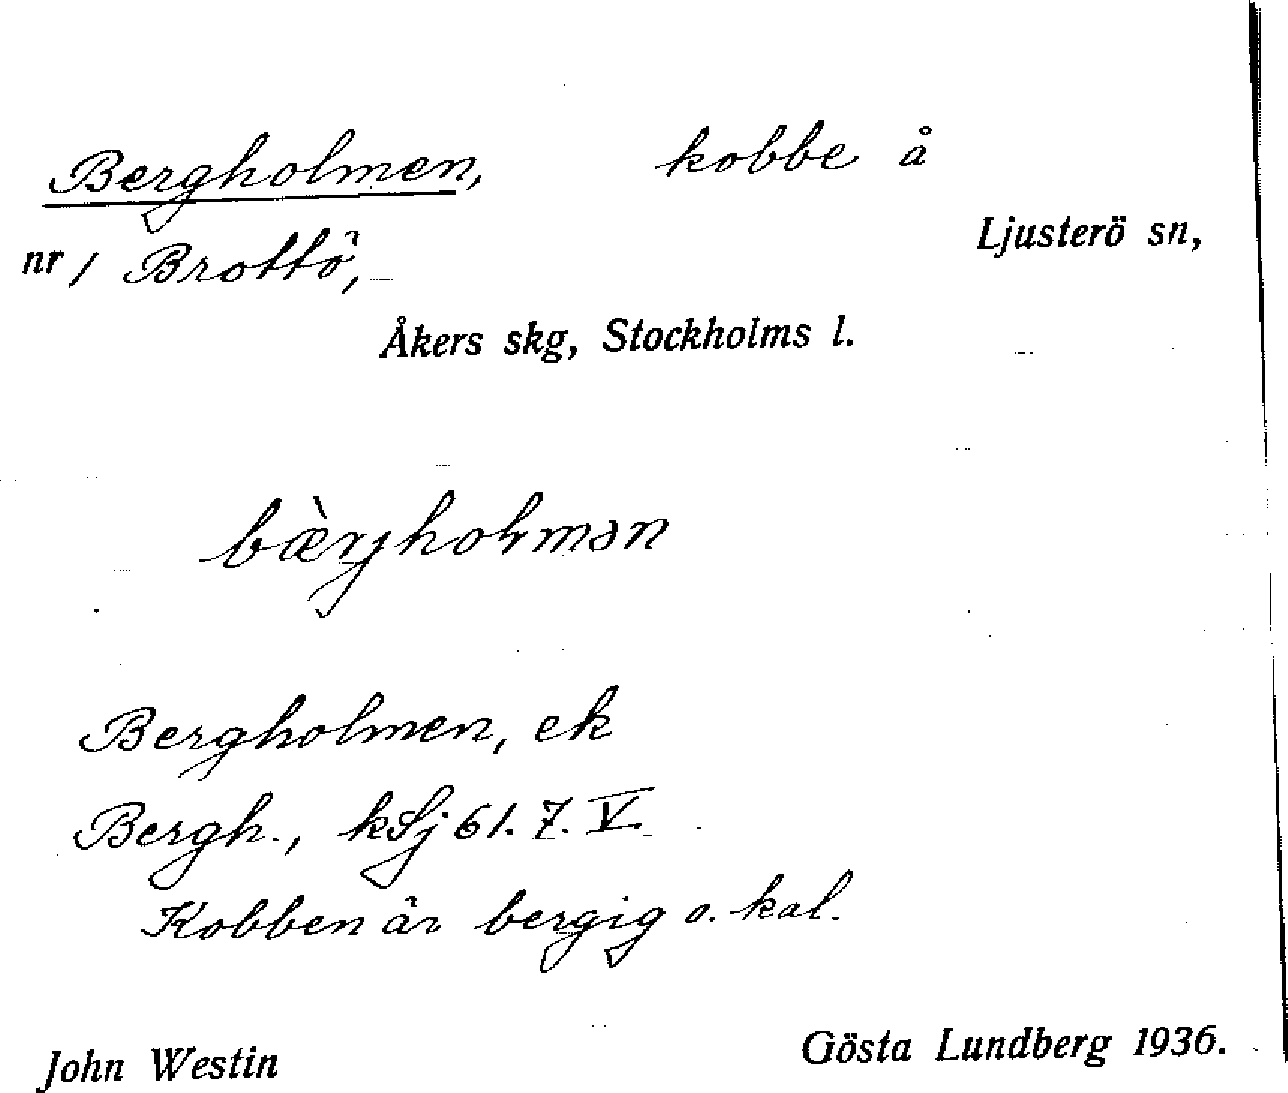 Bergholmen, kobbe å
Ljusterö sn,
nr 1 Brottö,
Åkers skg, Stockholms l.
bæ̀rjholmən
Bergholmen, ek
Bergh., kSj 61. 7. V.
Kobben är bergig o. kal.
John Westin Gösta Lundberg 1936.